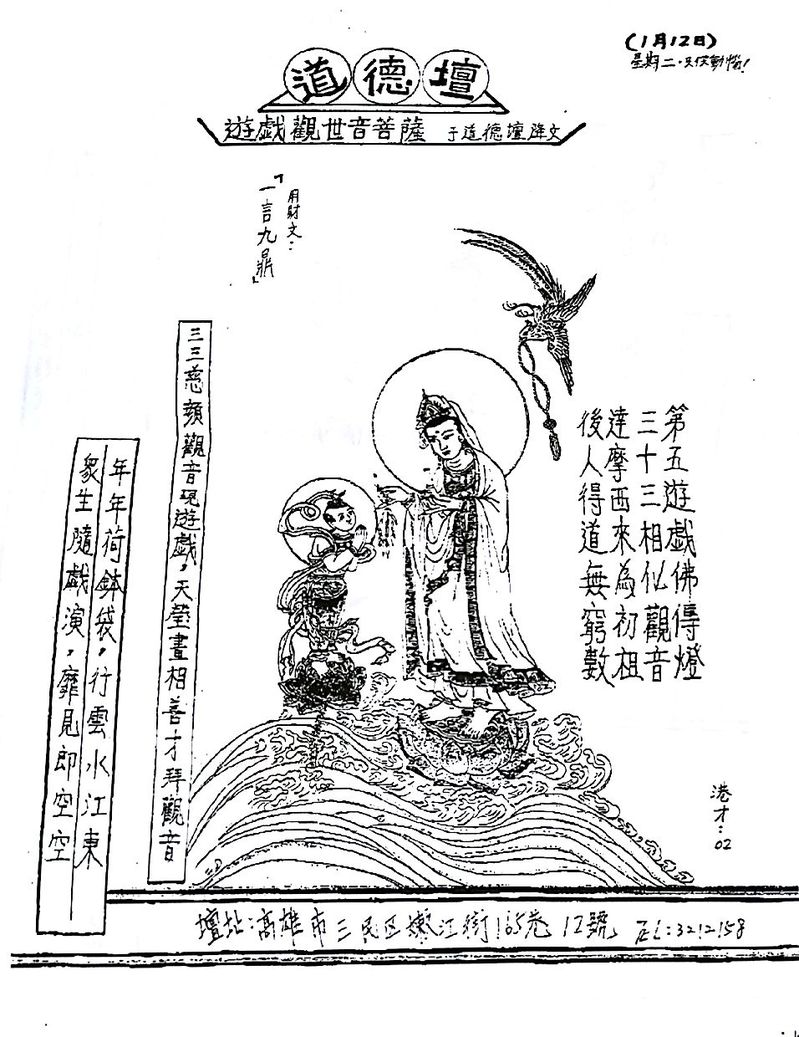 (1月12日)
星期二。
道德壇
遊戲觀世音菩薩 于道德壇降文
用財文:
「一言九鼎」
第五遊戲佛傳燈
三十三相似觀音
達摩西來為初祖
後人得道無窮數
三三慈顏觀音現遊戲,天瑩畫相善才拜觀音
年年荷鉢袋,行雲水江東
眾生隨戲演,靡見即空空
港才:02
壇址:高雄市三民区嫩江街165巷12號 TEL:3212158